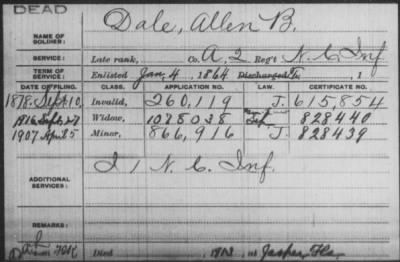 DEAD
NAME OF SOLDIER: Dale, Allen B.
SERVICE: Late rank, Co. A, 2 Reg't N. C. Inf.
TERM OF SERVICE: Enlisted Jan. 4, 1864 Discharged , 1
DATE OF FILING. CLASS. APPLICATION NO. LAW. CERTIFICATE NO.
1878 Sept. 10, Invalid, 260,119 J. 615,854
1916 Sept. 27 Widow, 1078038 828440
1907 Apr. 25 Minor, 866,916 J. 828439
ADDITIONAL SERVICES: I 1 N. C. Inf.
REMARKS:
Died , 190 , at Jasper, Fla.